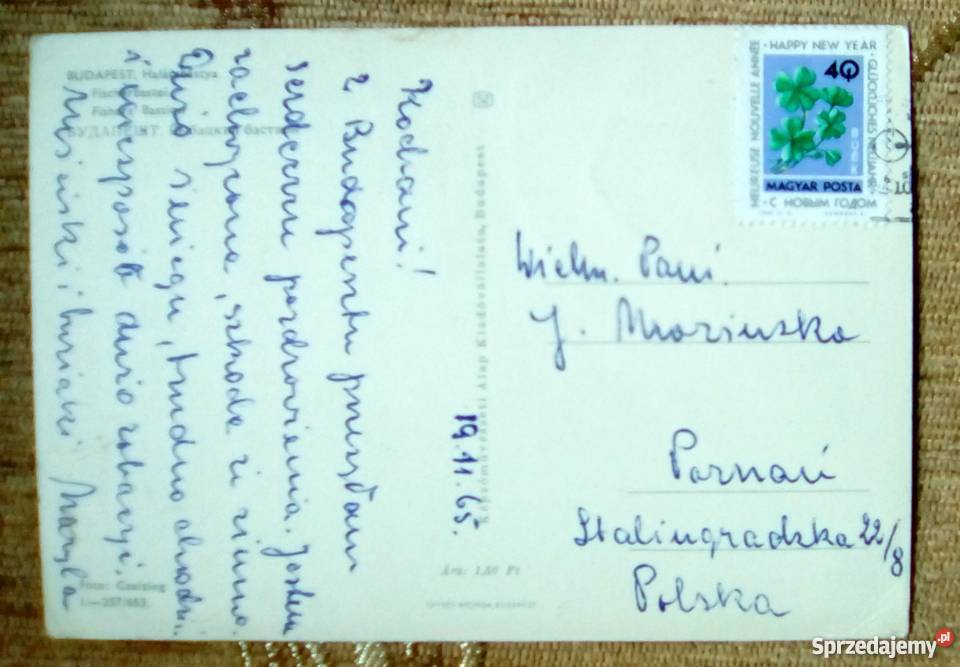 BUDAPEST, Halászbástya
Fischerbastei
Fishers' Bastion
БУДАПЕШТ. Рыбацкий бастион
Kochani!
z Budapesztu przesyłam
serdeczne pozdrowienia. Jestem
zachwycona, szkoda że zimno.
Dużo śniegu, trudno chodzić
i niesposób dużo zobaczyć.
i buziaki
Foto: Gneising
I.—207/653.
Képzőművészeti Alap Kiadóvállalata, Budapest
19.11.65.
Ára: 1,50 Ft
HAPPY NEW YEAR
HEUREUSE NOUVELLE ANNÉE
GLÜCKLICHES NEUJAHR
С НОВЫМ ГОДОМ
40
MAGYAR POSTA
10
Wielm. Pani
J. Mroziuska
Poznań
Stalingradzka 22/8
Polska
Sprzedajemy.pl